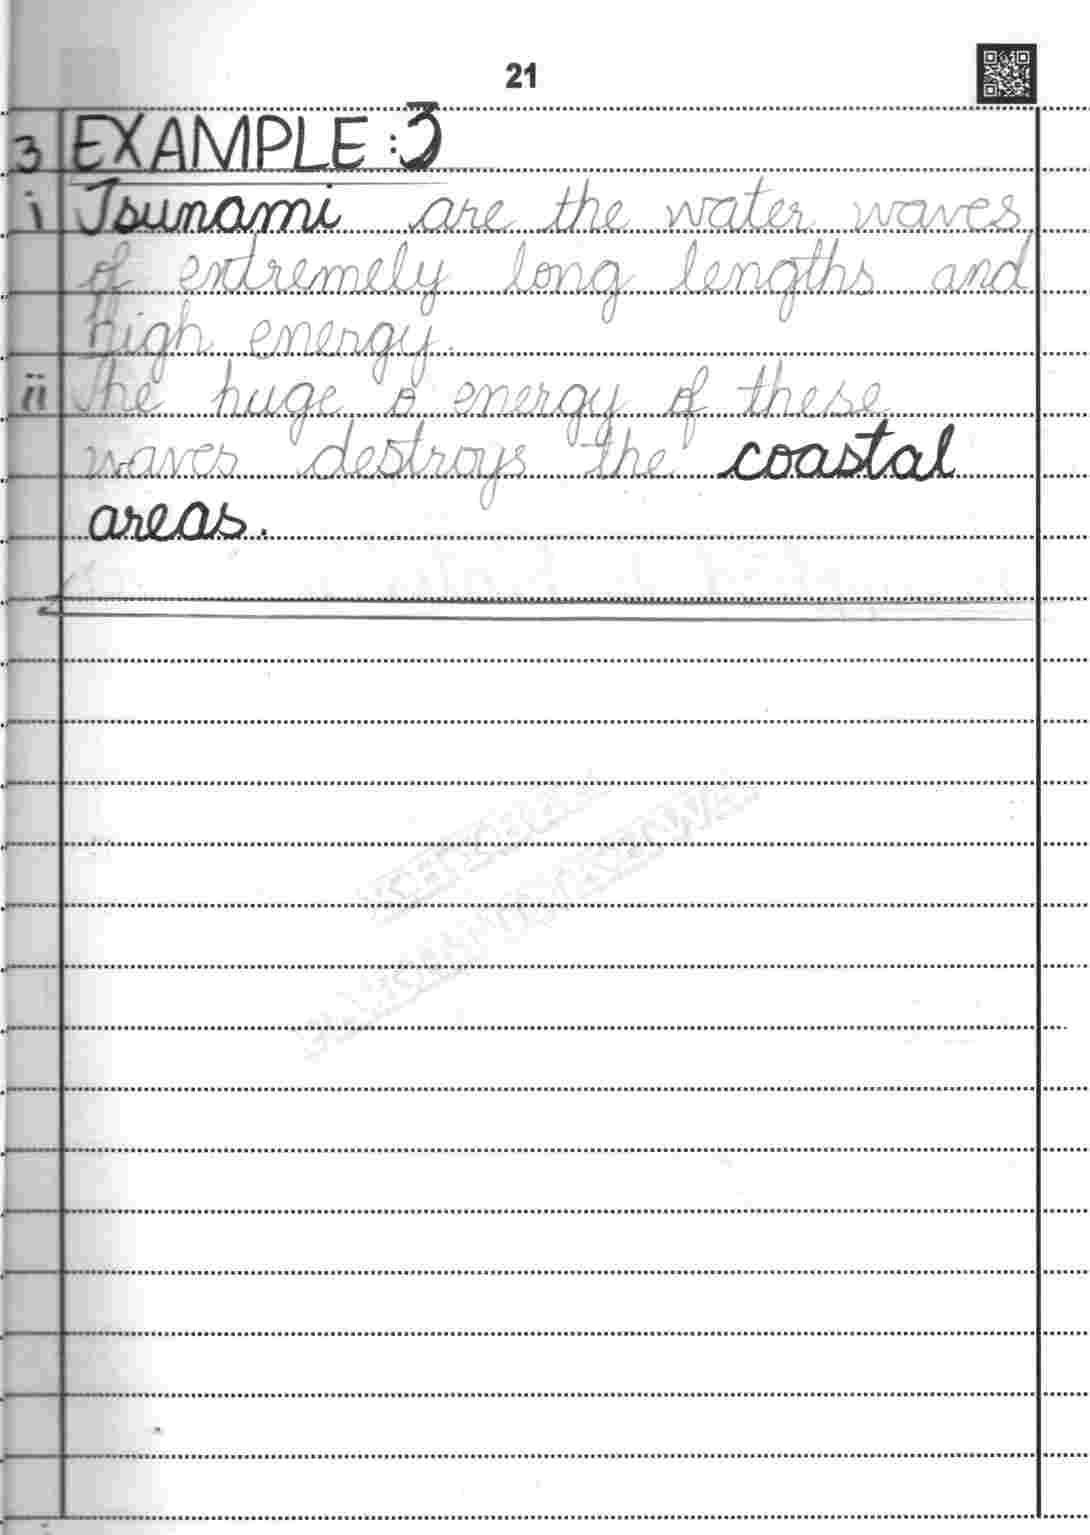 21
3 EXAMPLE :3
i Tsunami are the water waves
of extremely long lengths and
high energy.
ii The huge energy of these
waves destroys the coastal
areas.